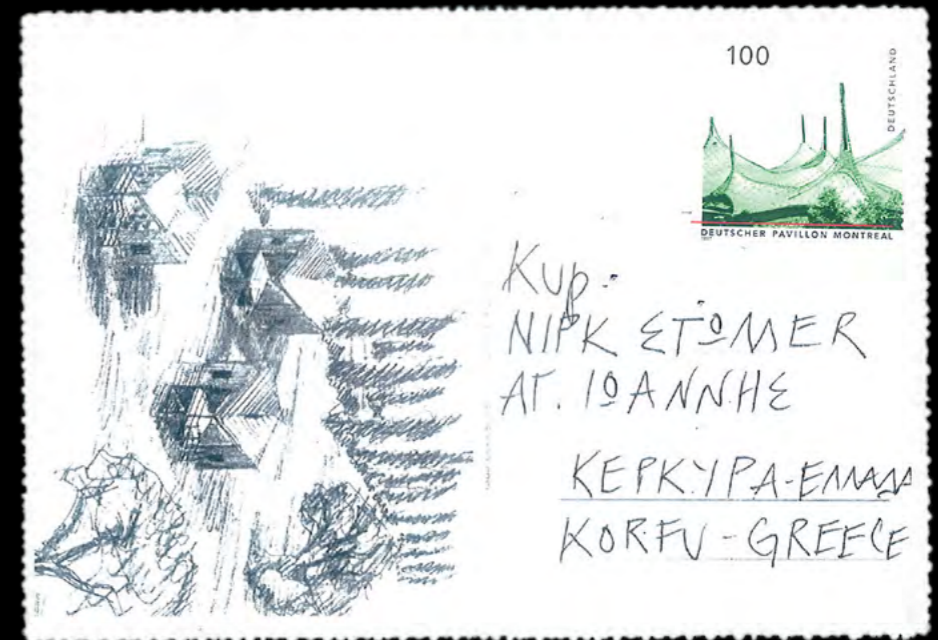 100
DEUTSCHLAND
DEUTSCHER PAVILLON MONTREAL
1997
Κυρ.
ΝΙΡΚ ΣΤΩΜΕR
ΑΓ. ΙΩΑΝΝΗΣ
ΚΕΡΚΥΡΑ-ΕΛΛΑΔΑ
KORFU-GREECE